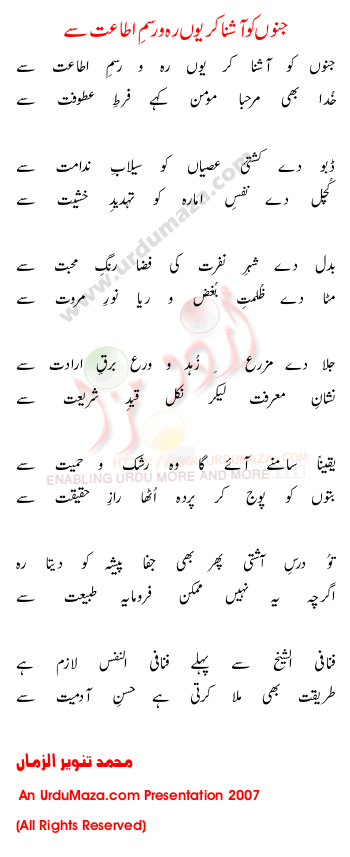 جنوں کو آشنا کر یوں رہ و رسمِ اطاعت سے
جنوں کو آشنا کر یوں رہ و رسمِ اطاعت سے
خُدا بھی مرحبا مومن کہے فرطِ عطوفت سے
ڈبو دے کشتیٔ عصیاں کو سیلابِ ندامت سے
کُچل دے نفسِ امارہ کو تہدیدِ خشیت سے
بدل دے شہرِ نفرت کی فضا رنگِ محبت سے
مٹا دے ظُلمتِ بُغض و ریا نورِ مروت سے
جلا دے مزرعِ زُہد و ورع برقِ ارادت سے
نشانِ معرفت لیکر نکل قیدِ شریعت سے
یقیناً سامنے آئے گا وہ رشک و حمیت سے
بتوں کو پوج کر پردہ اُٹھا رازِ حقیقت سے
توُ درسِ آشتی پھر بھی جفا پیشہ کو دیتا رہ
اگرچہ یہ نہیں ممکن فرومایہ طبیعت سے
فنافی الشیخ سے پہلے فنافی النفس لازم ہے
طریقت بھی ملا کرتی ہے حسنِ آدمیت سے
محمد تنویر الزماں
An UrduMaza.com Presentation 2007
(All Rights Reserved)
www.urdumaza.com
اردو مزا
HTTP://WWW.URDUMAZA.COM
ENABLING URDU MORE AND MORE